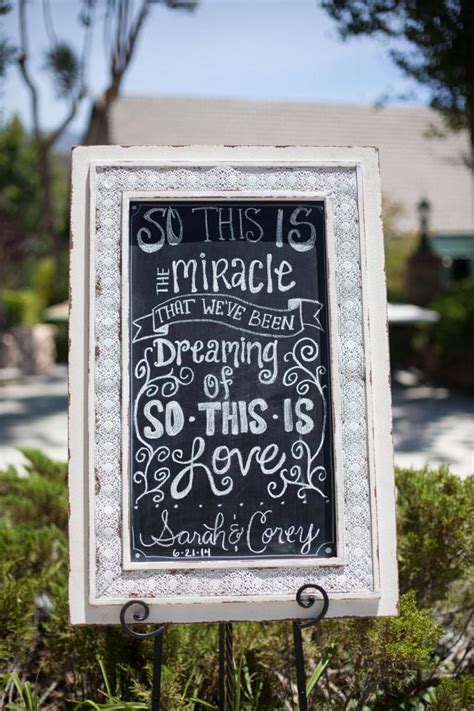 SO THIS IS
THE MIRACLE
THAT WE'VE BEEN
Dreaming
of
SO • THIS • IS
Love
Sarah & Corey
6-21-14